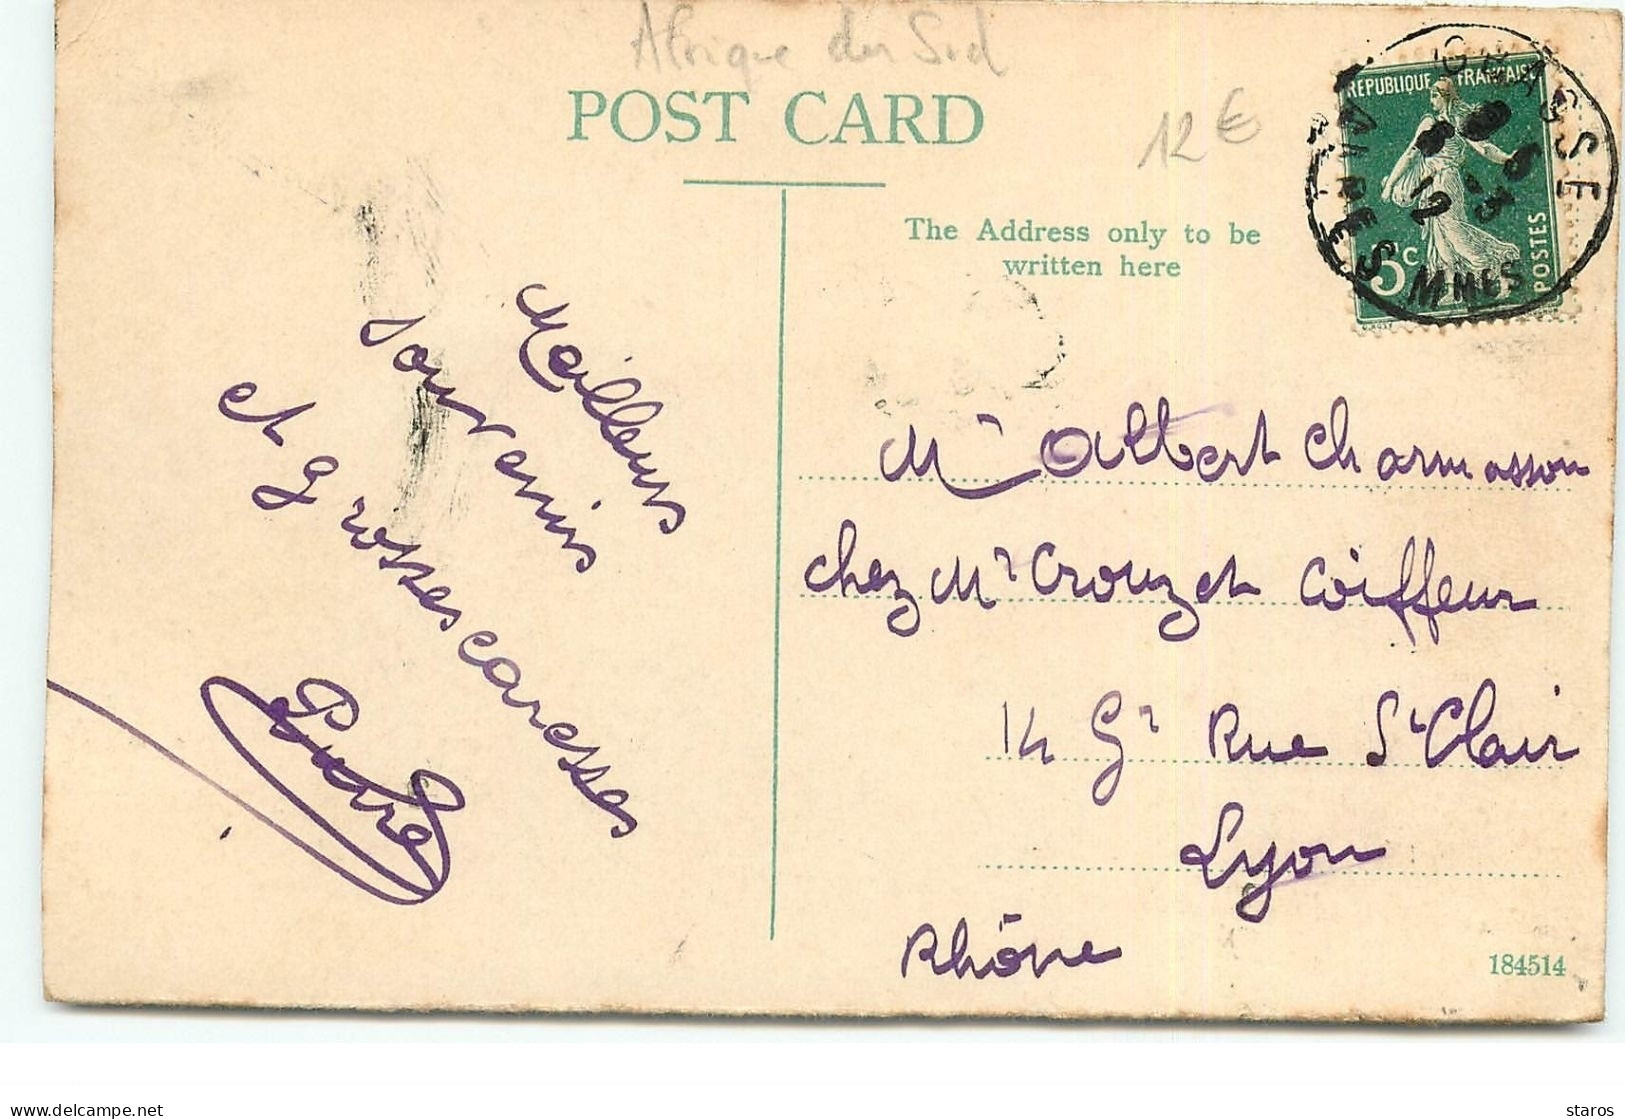 Afrique du Sud
POST CARD
12 €
The Address only to be
written here
REPUBLIQUE FRANÇAISE
POSTES
5c
GRASSE
Meilleurs
souvenirs
et grosses caresses
Mr Albert Charmasson
chez Mr Crouzet Coiffeur
14 Gr Rue St Clair
Lyon
Rhône
184514
delcampe.net
staros